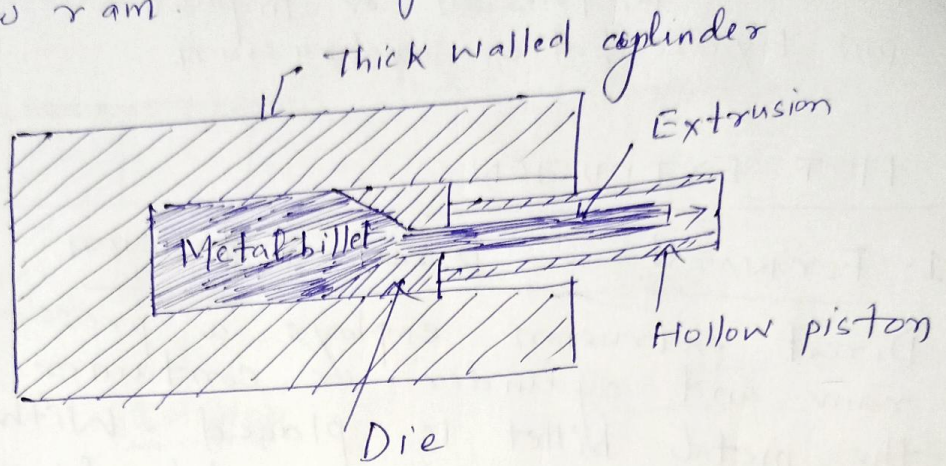 ram.
Thick walled cylinder
Extrusion
Metal billet
Hollow piston
Die